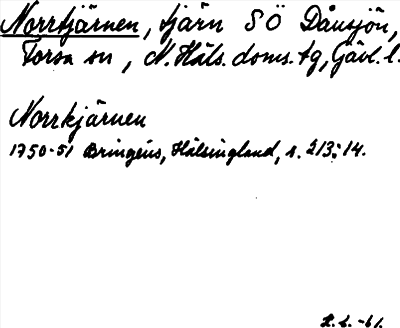 Norrtjärnen, tjärn SÖ Dåusjön,
Torsa sn, N. Häls. doms. tg, Gävl. l.
Norrkjärnen
1750-51 Bringéus, Hälsingland, s. 213:14.
L.L. -61.